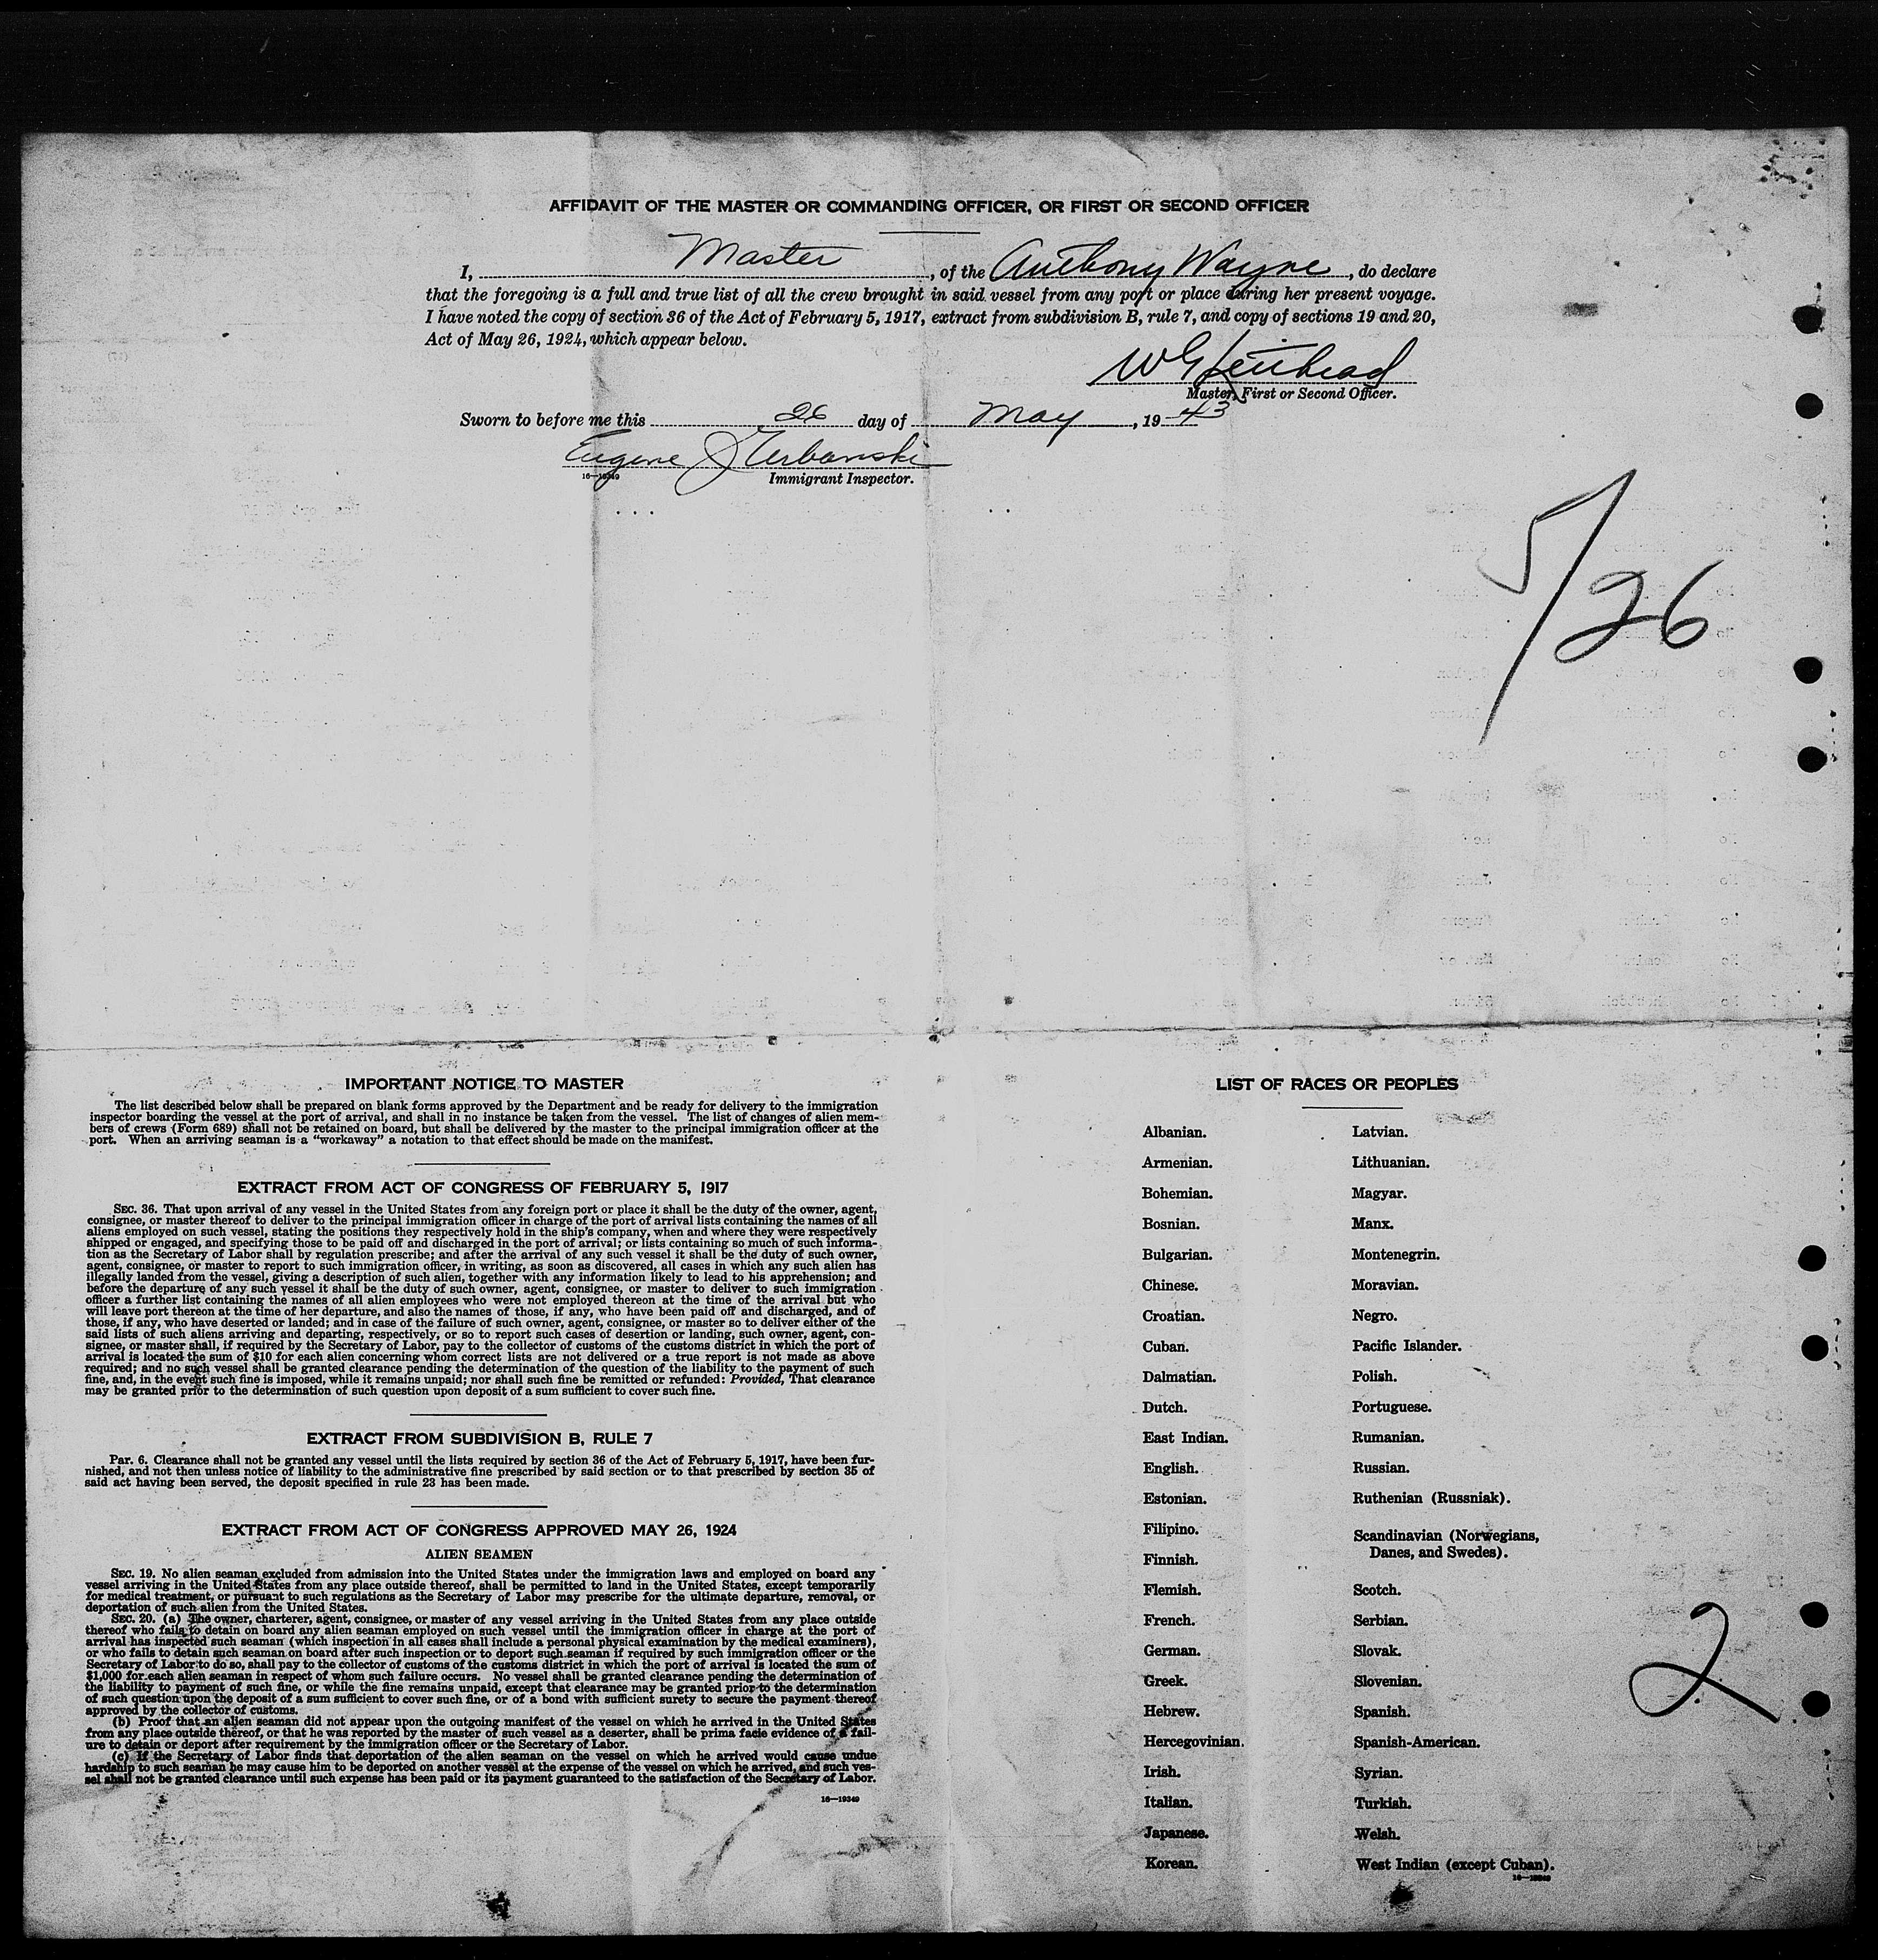 AFFIDAVIT OF THE MASTER OR COMMANDING OFFICER, OR FIRST OR SECOND OFFICER
I, Master, of the Anthony Wayne, do declare
that the foregoing is a full and true list of all the crew brought in said vessel from any port or place during her present voyage.
I have noted the copy of section 36 of the Act of February 5, 1917, extract from subdivision B, rule 7, and copy of sections 19 and 20,
Act of May 26, 1924, which appear below.
Master, First or Second Officer.
Sworn to before me this 26 day of May, 1943
Eugene J Urbanski
16—19349
Immigrant Inspector.
5/26
IMPORTANT NOTICE TO MASTER
The list described below shall be prepared on blank forms approved by the Department and be ready for delivery to the immigration
inspector boarding the vessel at the port of arrival, and shall in no instance be taken from the vessel. The list of changes of alien mem-
bers of crews (Form 689) shall not be retained on board, but shall be delivered by the master to the principal immigration officer at the
port. When an arriving seaman is a "workaway" a notation to that effect should be made on the manifest.
EXTRACT FROM ACT OF CONGRESS OF FEBRUARY 5, 1917
SEC. 36. That upon arrival of any vessel in the United States from any foreign port or place it shall be the duty of the owner, agent,
consignee, or master thereof to deliver to the principal immigration officer in charge of the port of arrival lists containing the names of all
aliens employed on such vessel, stating the positions they respectively hold in the ship's company, when and where they were respectively
shipped or engaged, and specifying those to be paid off and discharged in the port of arrival; or lists containing so much of such informa-
tion as the Secretary of Labor shall by regulation prescribe; and after the arrival of any such vessel it shall be the duty of such owner,
agent, consignee, or master to report to such immigration officer, in writing, as soon as discovered, all cases in which any such alien has
illegally landed from the vessel, giving a description of such alien, together with any information likely to lead to his apprehension; and
before the departure of any such vessel it shall be the duty of such owner, agent, consignee, or master to deliver to such immigration
officer a further list containing the names of all alien employees who were not employed thereon at the time of the arrival but who
will leave port thereon at the time of her departure, and also the names of those, if any, who have been paid off and discharged, and of
those, if any, who have deserted or landed; and in case of the failure of such owner, agent, consignee, or master so to deliver either of the
said lists of such aliens arriving and departing, respectively, or so to report such cases of desertion or landing, such owner, agent, con-
signee, or master shall, if required by the Secretary of Labor, pay to the collector of customs of the customs district in which the port of
arrival is located the sum of $10 for each alien concerning whom correct lists are not delivered or a true report is not made as above
required; and no such vessel shall be granted clearance pending the determination of the question of the liability to the payment of such
fine, and, in the event such fine is imposed, while it remains unpaid; nor shall such fine be remitted or refunded: Provided, That clearance
may be granted prior to the determination of such question upon deposit of a sum sufficient to cover such fine.
EXTRACT FROM SUBDIVISION B, RULE 7
Par. 6. Clearance shall not be granted any vessel until the lists required by section 36 of the Act of February 5, 1917, have been fur-
nished, and not then unless notice of liability to the administrative fine prescribed by said section or to that prescribed by section 35 of
said act having been served, the deposit specified in rule 23 has been made.
EXTRACT FROM ACT OF CONGRESS APPROVED MAY 26, 1924
ALIEN SEAMEN
SEC. 19. No alien seaman excluded from admission into the United States under the immigration laws and employed on board any
vessel arriving in the United States from any place outside thereof, shall be permitted to land in the United States, except temporarily
for medical treatment, or pursuant to such regulations as the Secretary of Labor may prescribe for the ultimate departure, removal, or
deportation of such alien from the United States.
SEC. 20. (a) The owner, charterer, agent, consignee, or master of any vessel arriving in the United States from any place outside
thereof who fails to detain on board any alien seaman employed on such vessel until the immigration officer in charge at the port of
arrival has inspected such seaman (which inspection in all cases shall include a personal physical examination by the medical examiners),
or who fails to detain such seaman on board after such inspection or to deport such seaman if required by such immigration officer or the
Secretary of Labor to do so, shall pay to the collector of customs of the customs district in which the port of arrival is located the sum of
$1,000 for each alien seaman in respect of whom such failure occurs. No vessel shall be granted clearance pending the determination of
the liability to payment of such fine, or while the fine remains unpaid, except that clearance may be granted prior to the determination
of such question upon the deposit of a sum sufficient to cover such fine, or of a bond with sufficient surety to secure the payment thereof
approved by the collector of customs.
(b) Proof that an alien seaman did not appear upon the outgoing manifest of the vessel on which he arrived in the United States
from any place outside thereof, or that he was reported by the master of such vessel as a deserter, shall be prima facie evidence of a fail-
ure to detain or deport after requirement by the immigration officer or the Secretary of Labor.
(c) If the Secretary of Labor finds that deportation of the alien seaman on the vessel on which he arrived would cause undue
hardship to such seaman he may cause him to be deported on another vessel at the expense of the vessel on which he arrived, and such ves-
sel shall not be granted clearance until such expense has been paid or its payment guaranteed to the satisfaction of the Secretary of Labor.
16—19349
LIST OF RACES OR PEOPLES
Albanian.
Armenian.
Bohemian.
Bosnian.
Bulgarian.
Chinese.
Croatian.
Cuban.
Dalmatian.
Dutch.
East Indian.
English.
Estonian.
Filipino.
Finnish.
Flemish.
French.
German.
Greek.
Hebrew.
Hercegovinian.
Irish.
Italian.
Japanese.
Korean.
Latvian.
Lithuanian.
Magyar.
Manx.
Montenegrin.
Moravian.
Negro.
Pacific Islander.
Polish.
Portuguese.
Rumanian.
Russian.
Ruthenian (Russniak).
Scandinavian (Norwegians,
Danes, and Swedes).
Scotch.
Serbian.
Slovak.
Slovenian.
Spanish.
Spanish-American.
Syrian.
Turkish.
Welsh.
West Indian (except Cuban).
16—19349
2